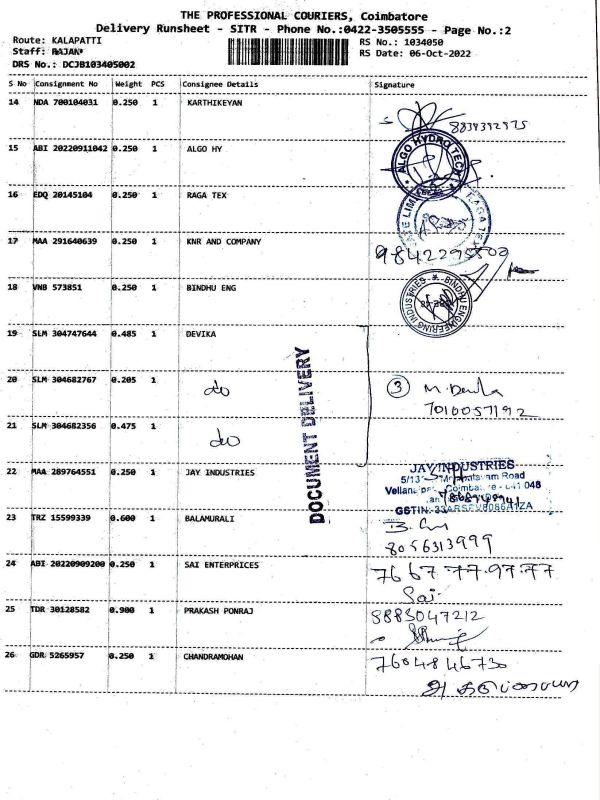 THE PROFESSIONAL COURIERS, Coimbatore
Delivery Runsheet - SITR - Phone No.:0422-3505555 - Page No.:2
Route: KALAPATTI
RS No.: 1034050
Staff: RAJAN
RS Date: 06-Oct-2022
DRS No.: DCJB103405002
S No Consignment No Weight PCS Consignee Details Signature
14 NDA 700104031 0.250 1 KARTHIKEYAN
8839392975
15 ABI 20220911042 0.250 1 ALGO HY
ALGO HYDRO TECH
16 EDQ 20145104 0.250 1 RAGA TEX
RAGA TEX
17 MAA 291640639 0.250 1 KNR AND COMPANY
18 VNB 573851 0.250 1 BINDHU ENG
BINDHU ENGINEERING INDUSTRIES
19 SLM 304747644 0.485 1 DEVIKA
20 SLM 304682767 0.205 1 do
3 M. Devika
7010057192
21 SLM 304682356 0.475 1 do
DOCUMENT DELIVERY
22 MAA 289764551 0.250 1 JAY INDUSTRIES
JAY INDUSTRIES
23 TRZ 15599339 0.600 1 BALAMURALI
8056313999
24 ABI 20220909200 0.250 1 SAI ENTERPRICES
7667779777
Sai
25 TDR 30128582 0.900 1 PRAKASH PONRAJ
8883047212
26 GDR 5265957 0.250 1 CHANDRAMOHAN
7604846730